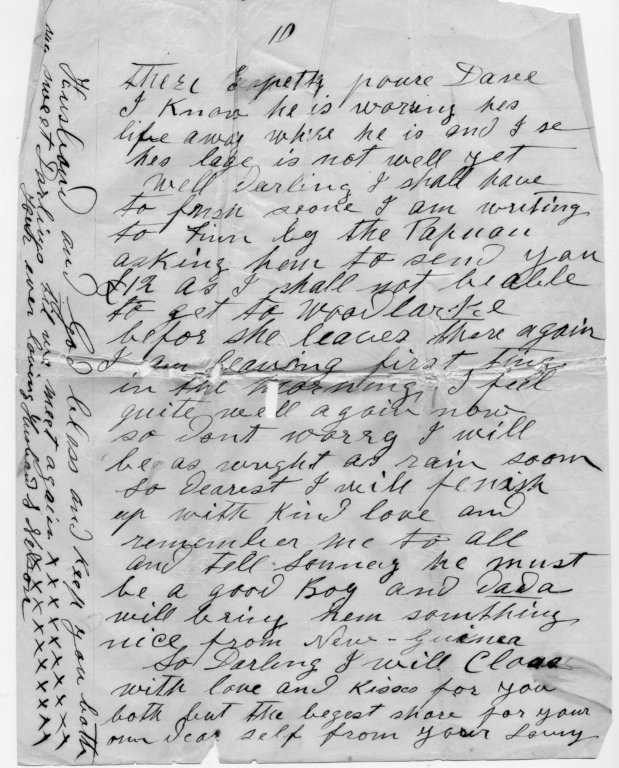 10
there I petty poure Dave
I Know he is woring hes
life away where he is and I se
hes lage is not well yet
well Darling I shall have
to finsh seone I am writing
to him by the Tapuau
asking hem to send you
£12 as I shall not beable
to get to Woodlarke
befor she leaves there again
I am leaving first ting
in the morning, I feel
quite well again now
so Dont worry I will
be as wright as rain soom
so Dearest I will fenish
up with Kind love and
remember me to all
and tell Sonney he must
be a good Boy and Dada
will bring hem somthing
nice from New-Guinea
So Darling I will Close
with love and Kisses for you
both but the begest share for your
own Dear self from your Loving
Husband and God bless and Keep you both
my sweet Darlings till we meet again xxxxxxxxx
your ever loving Husband S Nelson xxxxxxxx